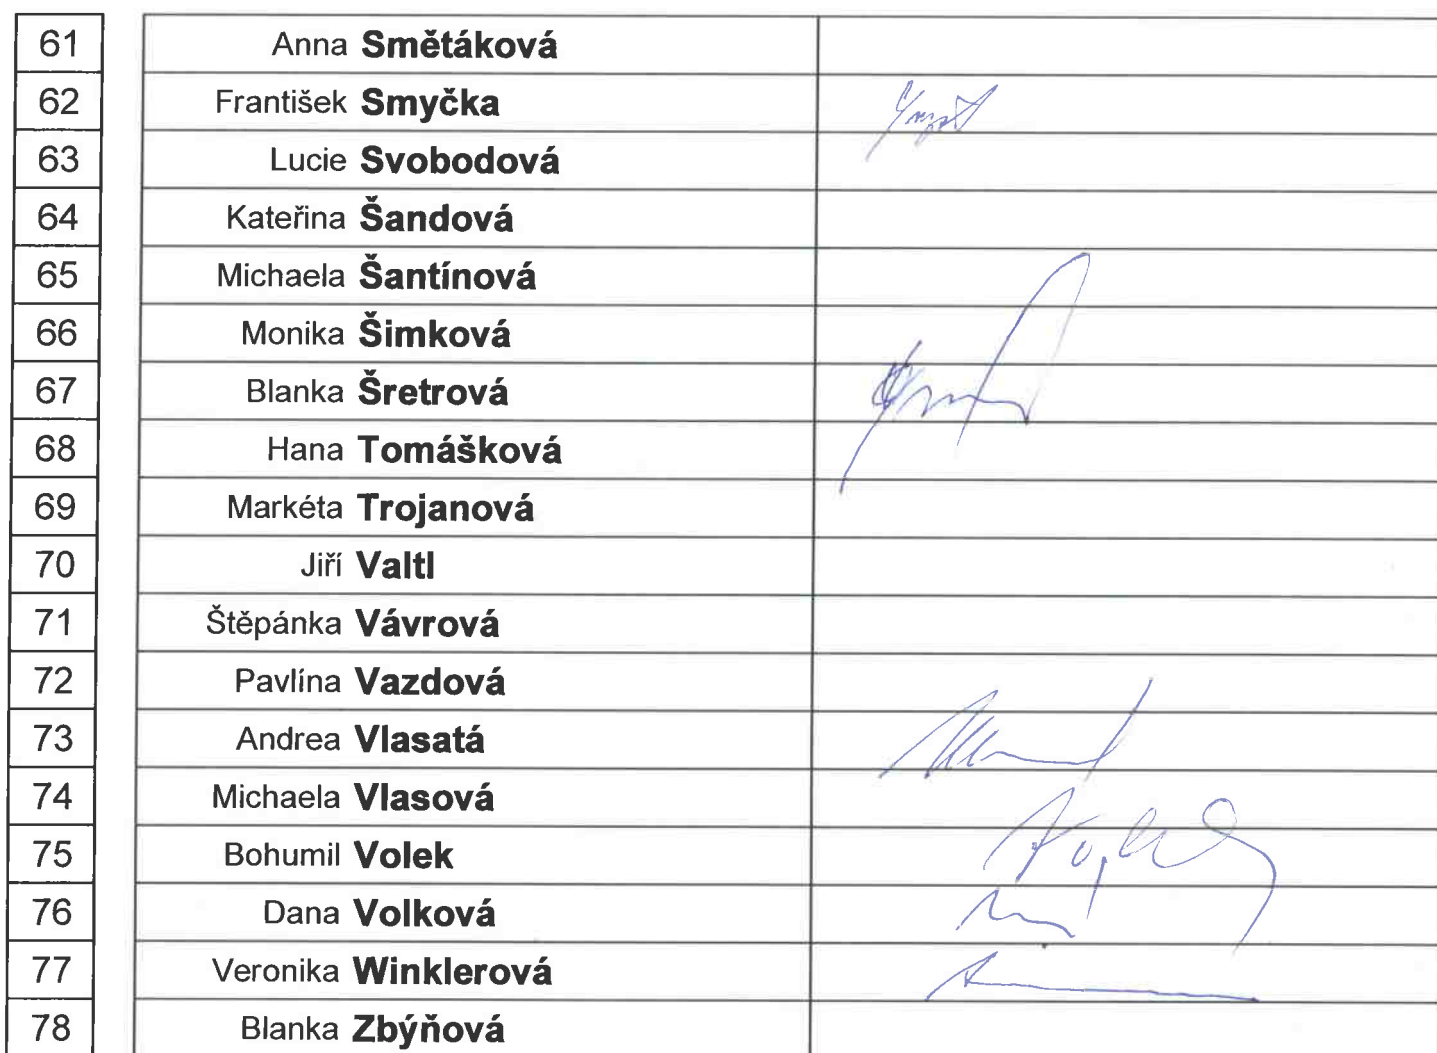 61 Anna Smětáková
62 František Smyčka
63 Lucie Svobodová
64 Kateřina Šandová
65 Michaela Šantínová
66 Monika Šimková
67 Blanka Šretrová
68 Hana Tomášková
69 Markéta Trojanová
70 Jiří Valtl
71 Štěpánka Vávrová
72 Pavlína Vazdová
73 Andrea Vlasatá
74 Michaela Vlasová
75 Bohumil Volek
76 Dana Volková
77 Veronika Winklerová
78 Blanka Zbýňová